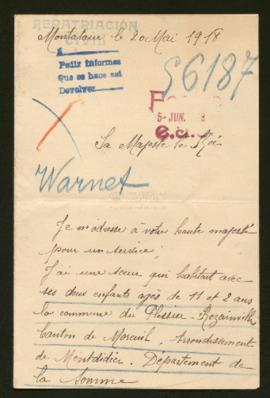 REPATRIACIÓN
CIVIL
Montataire le 20 Mai 1918
A
Pedir informes
Que se hace así
Devolver
56187
5-JUN. 8
Sa Majesté le Roi
Warnet
Je m'adresse à votre haute majesté
pour un service;
J'ai une sœur qui habitait avec
ses deux enfants agés de 11 et 2 ans
la commune du Plessier-Rozainvillers
Canton de Moreuil. Arrondissement
de Montdidier. Département de
la Somme